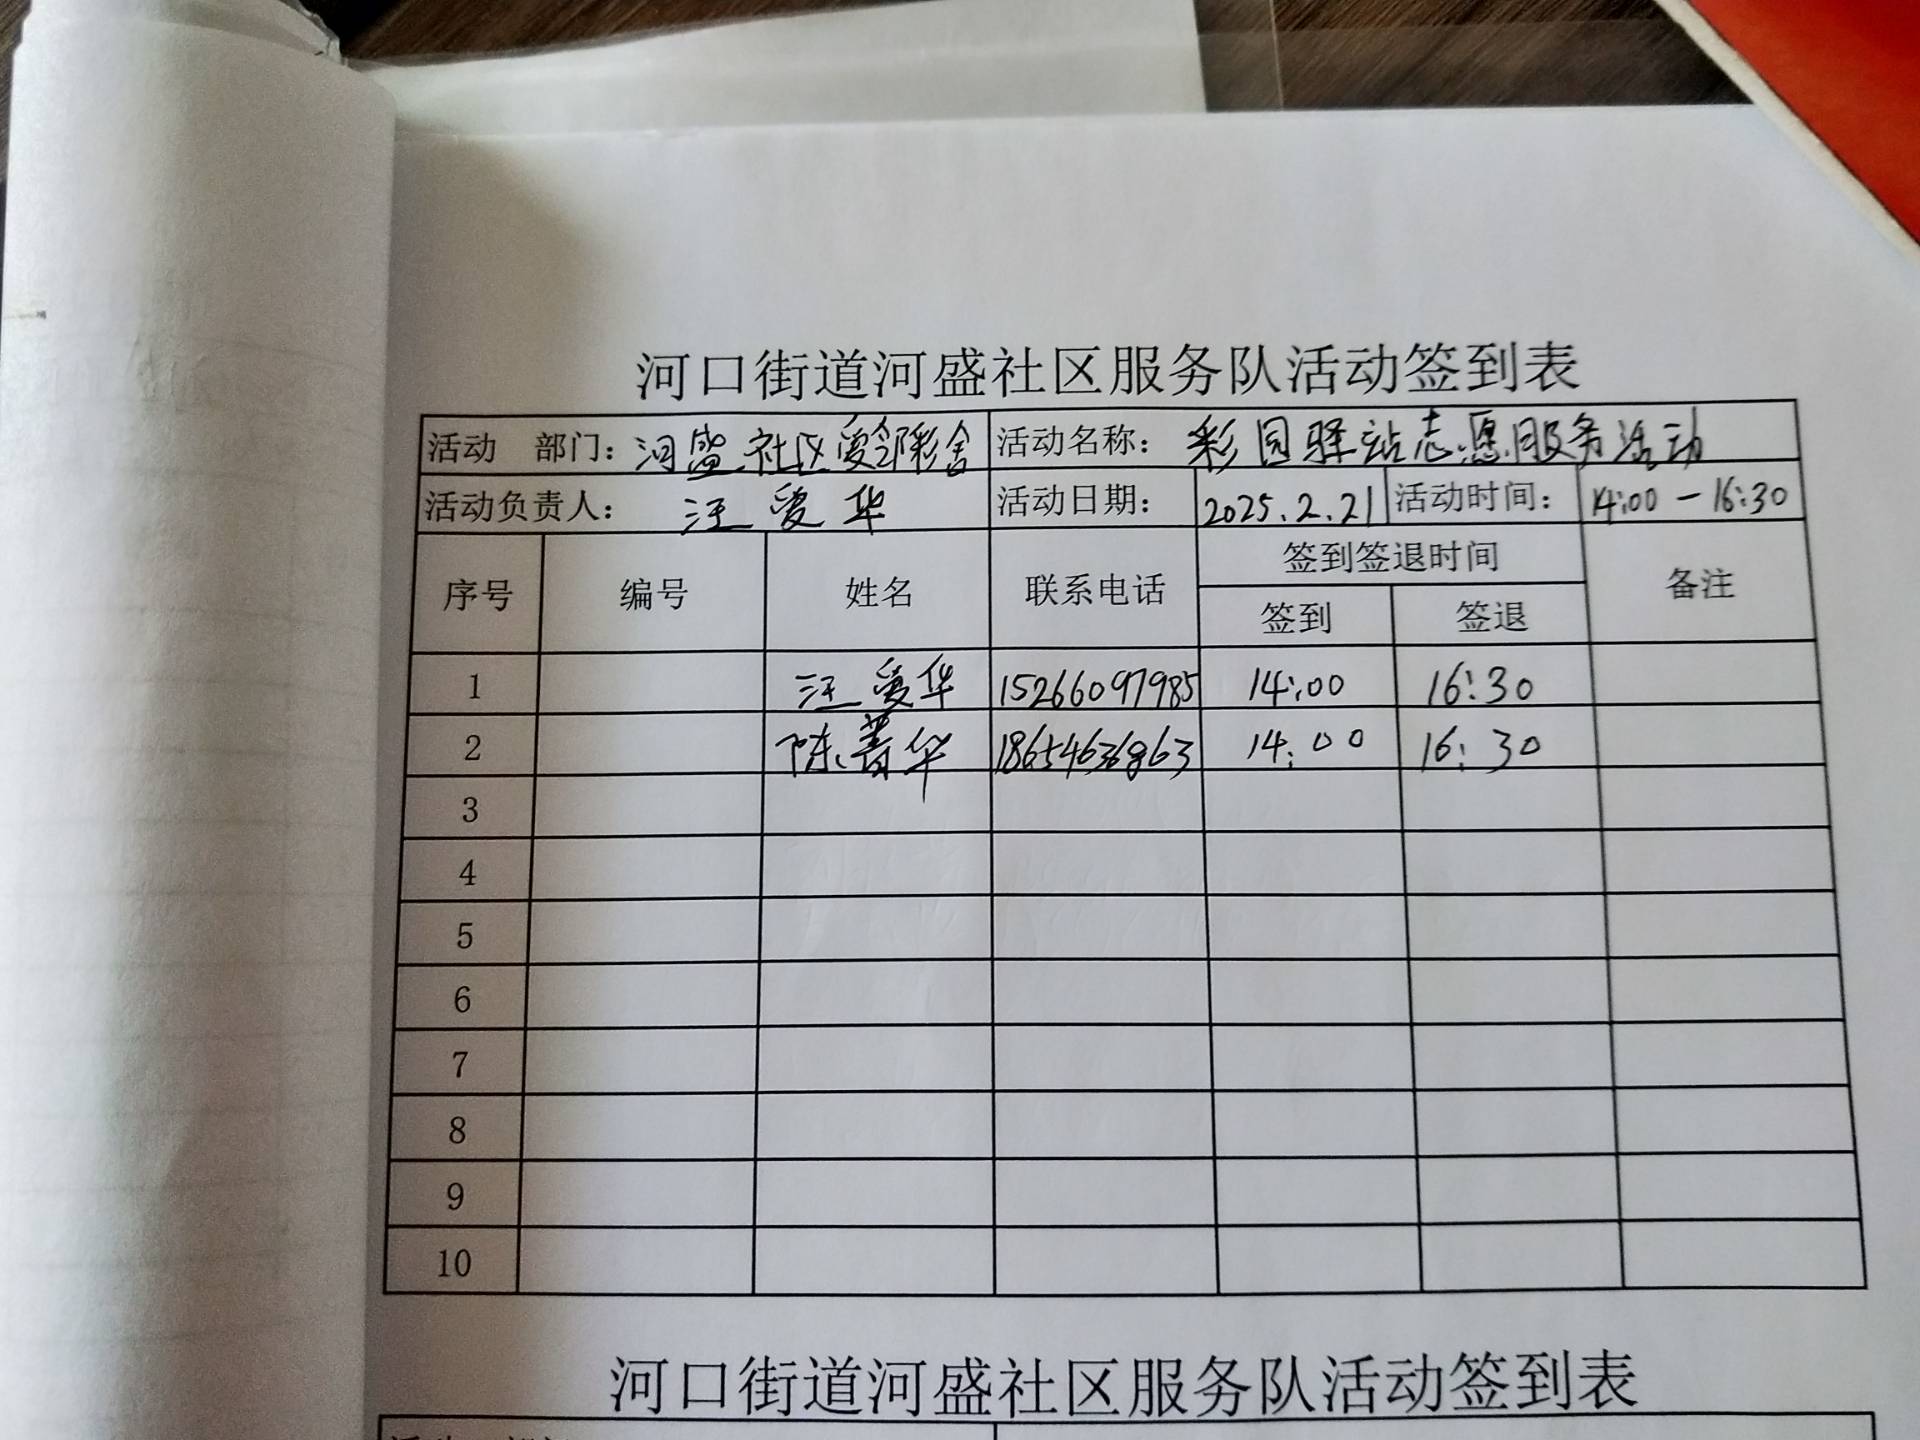 河口街道河盛社区服务队活动签到表
活动 部门：河盛社区爱邻彩舍 活动名称：彩园驿站志愿服务活动
活动负责人：汪爱华 活动日期：2025.2.21 活动时间：14:00-16:30
序号 编号 姓名 联系电话 签到签退时间 备注
签到 签退
1 汪爱华 15266097985 14:00 16:30
2 陈菁华 18654636863 14:00 16:30
3
4
5
6
7
8
9
10
河口街道河盛社区服务队活动签到表